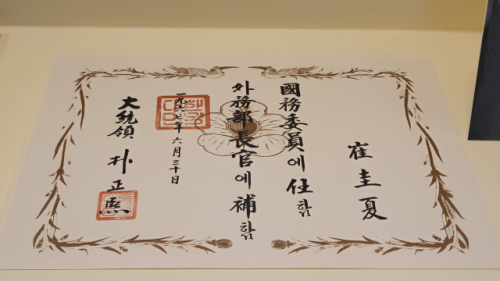 崔圭夏
國務委員에 任함
外務部長官에 補함
一九六七年 六月三十日
大統領 朴正熙